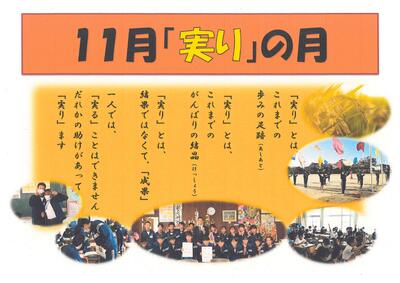 11月「実り」の月
「実り」とは、
これまでの
歩みの足跡（あしあと）
「実り」とは、
これまでの
がんばりの結晶（けっしょう）
「実り」とは、
結果ではなくて、「成果」
一人では、
「実る」ことはできません
だれかの助けがあって
「実り」ます